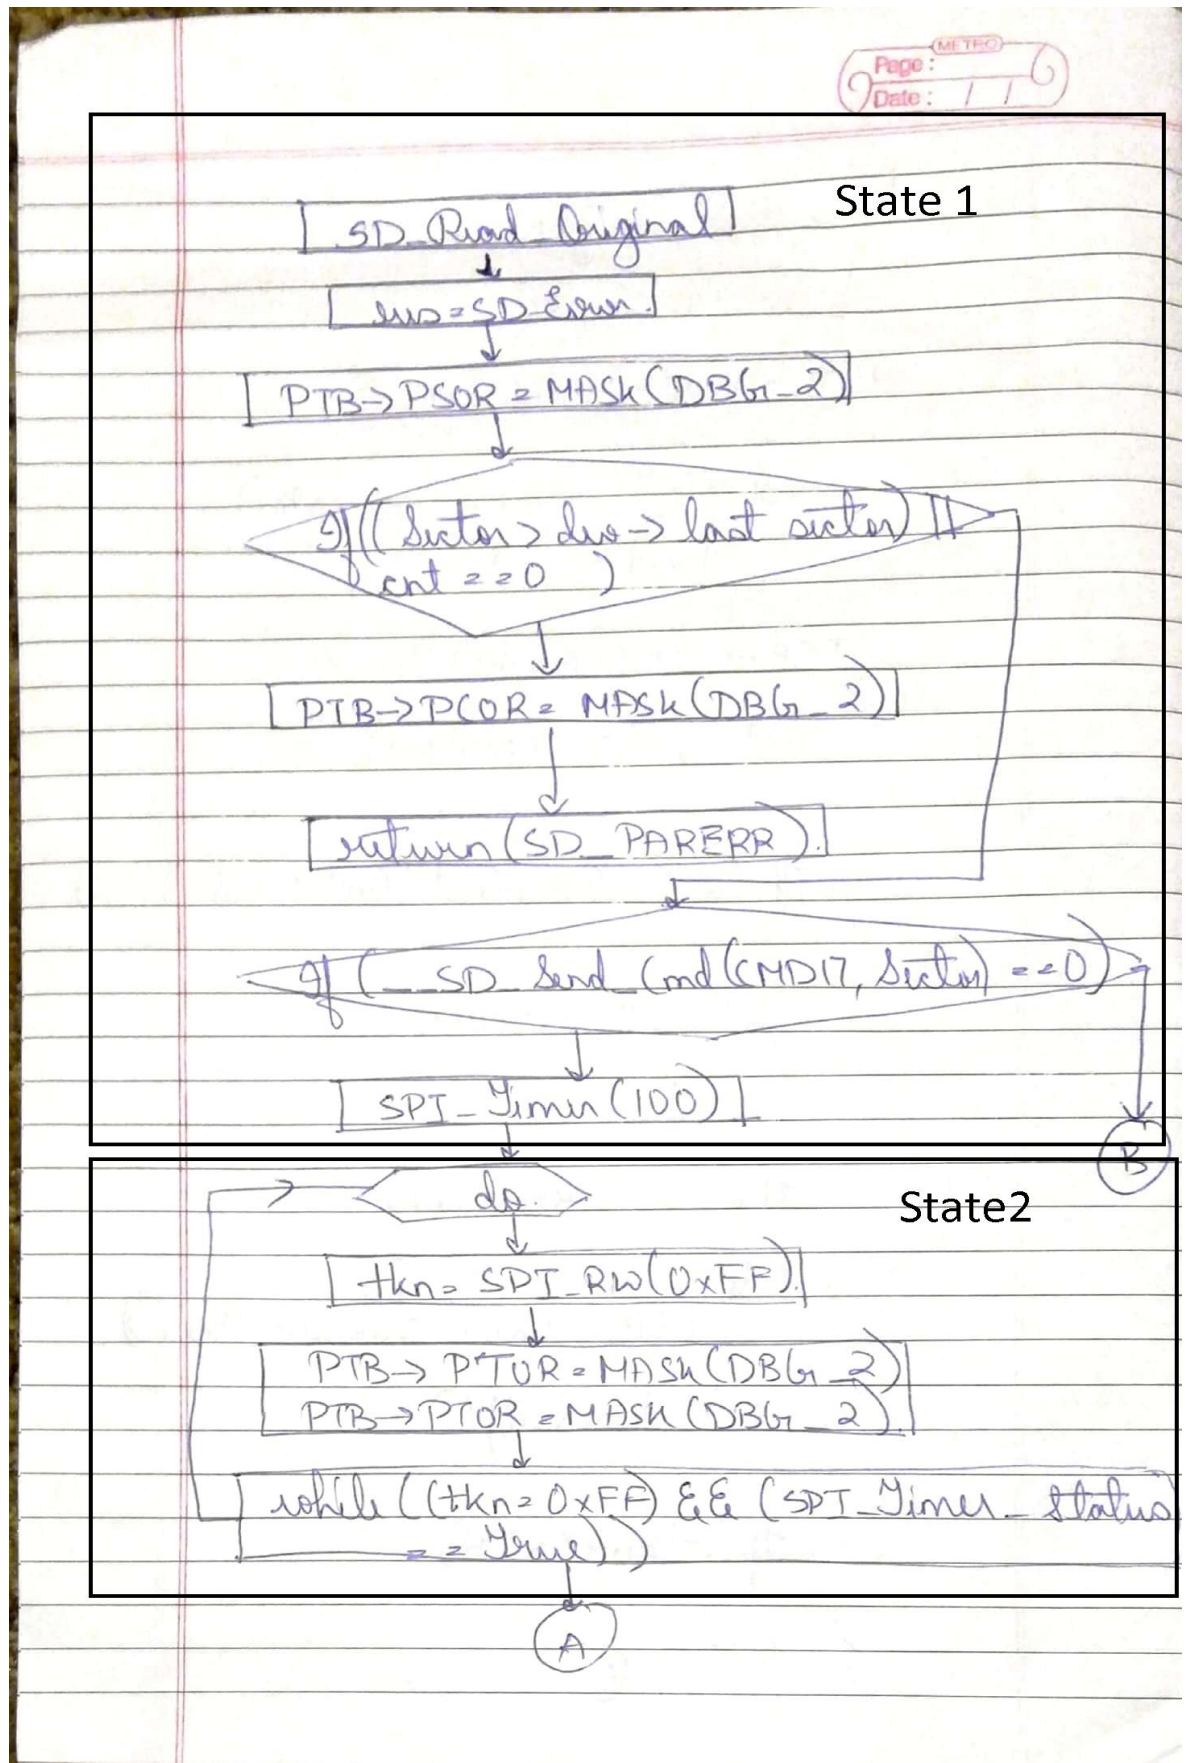 METRO
Page :
Date : / /
State 1
SD_Read_Original
res=SD_Error.
PTB->PSOR = MASK(DBG_2)
If((Sector > dev -> last sector) ||
cnt == 0 )
PTB->PCOR = MASK(DBG_2)
return(SD_PARERR).
If (__SD_Send_Cmd(CMD17, Sector) == 0)
SPI_Timer(100)
B
do.
State2
tkn= SPI_RW(0xFF).
PTB-> PTOR = MASK(DBG_2)
PTB->PTOR = MASK(DBG_2).
while((tkn=0xFF) && (SPI_Timer_Status
== True))
A